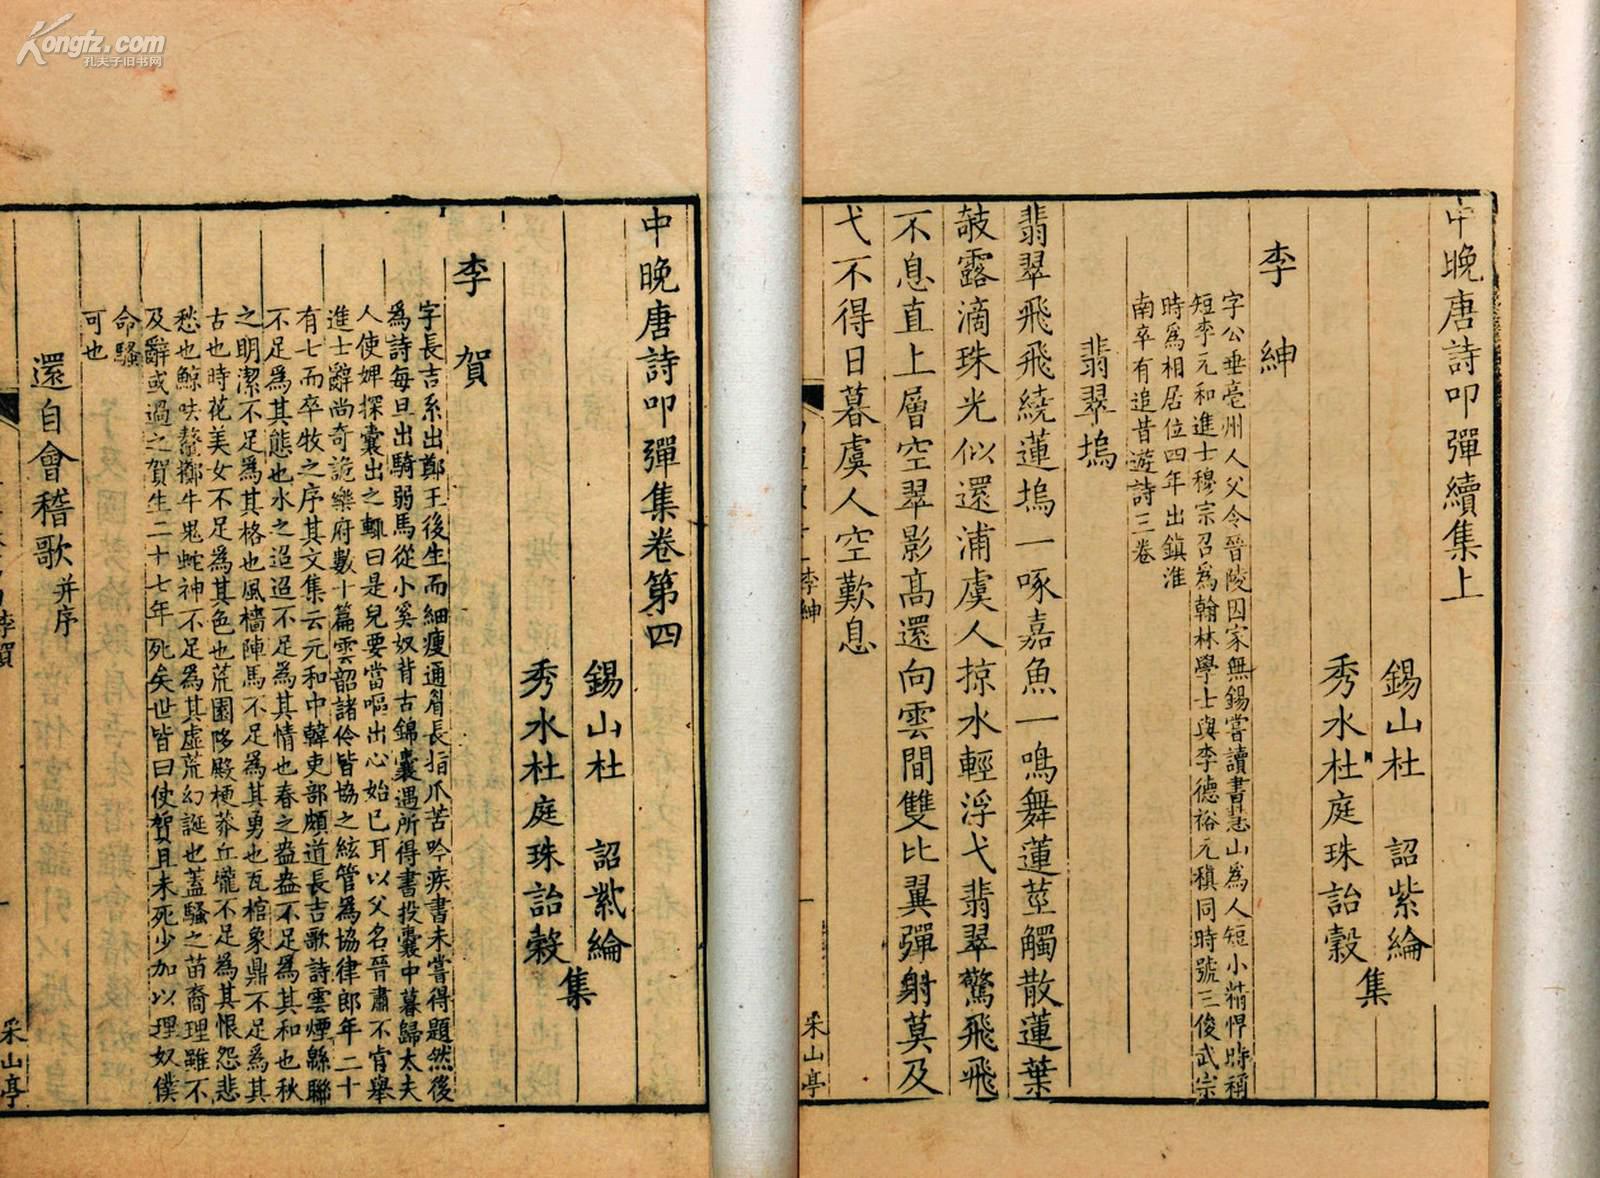 Kongfz.com
孔夫子旧书网
中晚唐詩叩彈續集上
錫山杜　詔紫綸
秀水杜庭珠詒穀
集
李　紳
字公垂亳州人父令晉陵因家無錫嘗讀書慧山爲人短小精悍時稱
短李元和進士穆宗召爲翰林學士與李德裕元稹同時號三俊武宗
時爲相居位四年出鎮淮
南卒有追昔遊詩三卷
翡翠塢
翡翠飛飛繞蓮塢一啄嘉魚一鳴舞蓮莖觸散蓮葉
皷露滴珠光似還浦虞人掠水輕浮弋翡翠驚飛飛
不息直上層空翠影高還向雲間雙比翼彈射莫及
弋不得日暮虞人空歎息
李紳
采山亭
中晚唐詩叩彈集卷第四
錫山杜　詔紫綸
秀水杜庭珠詒穀
集
李　賀
字長吉系出鄭王後生而細瘦通眉長指爪苦吟疾書未嘗得題然後
爲詩每旦出騎弱馬從小奚奴背古錦囊遇所得書投囊中暮歸太夫
人使婢探囊出之輒曰是兒要當嘔出心始已耳以父名晉肅不肯舉
進士辭尚奇詭樂府數十篇雲韶諸伶皆協之絃管為協律郎年二十
有七而卒杜牧之序其文集云元和中韓吏部頗道長吉歌詩雲煙緜聯
不足爲其態也水之迢迢不足為其情也春之盎盎不足為其和也秋
之明潔不足為其格也風檣陣馬不足為其勇也瓦棺象鼎不足為其
古也時花美女不足為其色也荒國陊殿梗莽丘壠不足為其恨怨悲
愁也鯨呿鼇擲牛鬼蛇神不足為其虛荒幻誕也蓋騷之苗裔理雖不
及辭或過之賀生二十七年死矣世皆曰使賀且未死少加以理奴僕
命騷
可也
還自會稽歌并序
李賀
采山亭